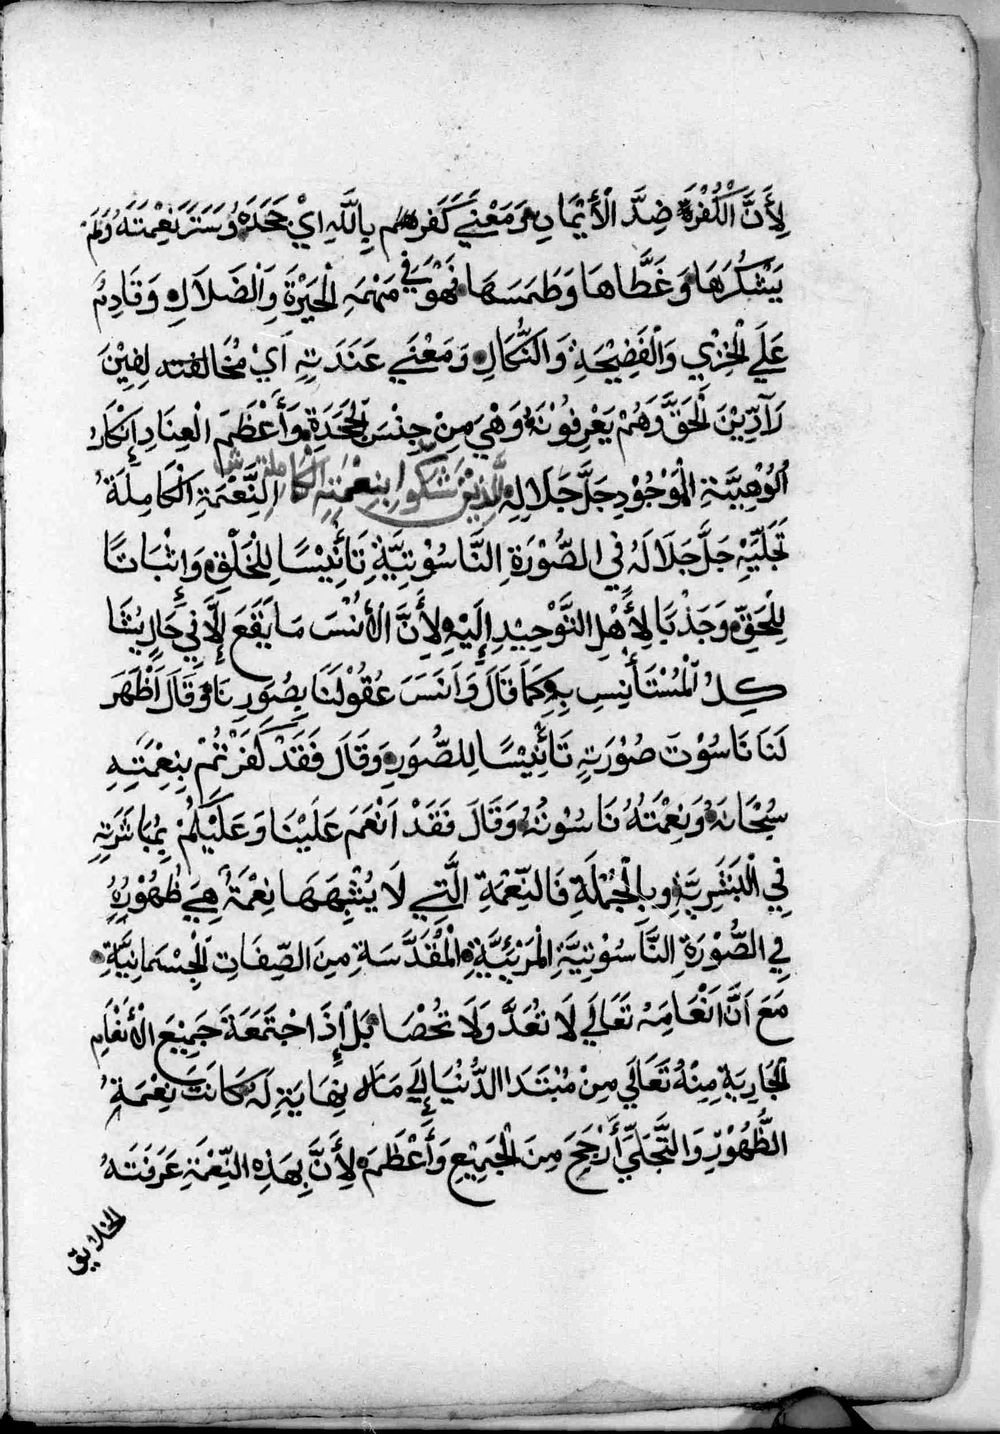 لِأَنَّ الْكُفْرَ ضِدَّ الْأَيْمَانِ وَمَعْنَي كَفَرَهُم بِاللَّهِ ايْ جَحَدَهُ وَسَتَرَ نِعْمَتَهُ وَلَمْ
يَشْكُرَهَا وَغَطَّاهَا وَطَمَسَهَا فَهُوَ فِي مَهْمَهِ الْحَيْرَةَ وَالْضَلَالِ وَقَادِمُ
عَلَي الْخِزْيِ وَالْفَضِيْحَةِ وَالنَّكَالِ وَمَعْنَي عَنَدَتِهِ اَيْ مُخَالفته لِفِيْنَ
رَآدِّيْنَ الْحَقَّ وَهُمْ يَعْرِفُوْنَهُ وَهْيَ مِنْ جِنْسَ الْجَحَدَةِ وَأَعْظَمَ الْعِنَادِ إِنْكَارُ
اُلُوْهِيَّةِ الْمَوْجُوْدِ جَلَّ جَلَالِهِ الَّذِيْنَ شَكَوا بِنِعْمَتِهِ الْكَاملة النِّعْمَةِ الْكَامِلَةُ
تَجَلِّيْهِ جَلَّ جَلَالَهُ فِي الصُّوْرَةِ النَّاسُوْتِيَّةِ تَأْنِيْسًا لِلْخَلْقِ وَاِثْبَاتًا
لِلْحَقِّ وَجَذْبَا لِأَهْلِ التَّوْحِيْدِ إِلَيْهِ وَلِأَنَّ الْأُنْسَ مَا يَقَعَ إِلَّا فِي حَالٍ يُشَا
كِلُ الْمُسْتَأْنِسِ بِهِ كَمَا قَالَ وَاَنَسَ عُقُوْلَنَا بِصُوَرِنَا وَقَالَ اَظْهَرَ
لَنَا نَاسُوْتَ صُوْرَتِهِ تَأْنِيْسًا لِلصُّوَرِ وَقَالَ فَقَدْ كَفَرْتُمْ بِنِعْمَتِهِ
سُبْحَانَهُ وَنِعْمَتُهُ نَاسُوْتُهُ وَقَالَ فَقَدْ اَنْعَمَ عَلَيْنَا وَعَلَيْكُمْ بِمُبَاشَرَتِهِ
فِي الْبَشَرِيَّةِ وبِالْجُمْلَةِ فَالنِّعْمَةِ الَّتِي لَا يُشْبِهَهَا نِعْمَةُ هِيَ ظُهُوْرُهُ
فِي الصُّوْرَةِ النَّاسُوْتِيَّةِ الْمَرْئِيَّةِ الْمُقَدَّسَةِ مِنَ الصِّفَاتِ الْجِسْمَانِيَّةِ
مَعَ اَنَّ اَنْعَامَهُ تَعَالَي لَا تُعَدَّ وَلَا تُحْصَا بَلْ إِذَ اجْتَمَعَةَ جَمِيْعَ الْأَنْعَامِ
الْجَارِيَةِ مِنْهُ تَعَالَي مِنْ مُبْتَدَا الدُّنْيَا إِلَي مَالَا نِهَايَةِ لَهُ كَانَتْ نِعْمَةِ
الظُّهُوْرِ وَالتَّجَلِّي أَرْجَحَ مِنَ الْجَمِيْعِ وَأَعْظَمَ لِأَنَّ بِهَذِهِ النِّعْمَةِ عَرَفَتَهُ
الخلايق